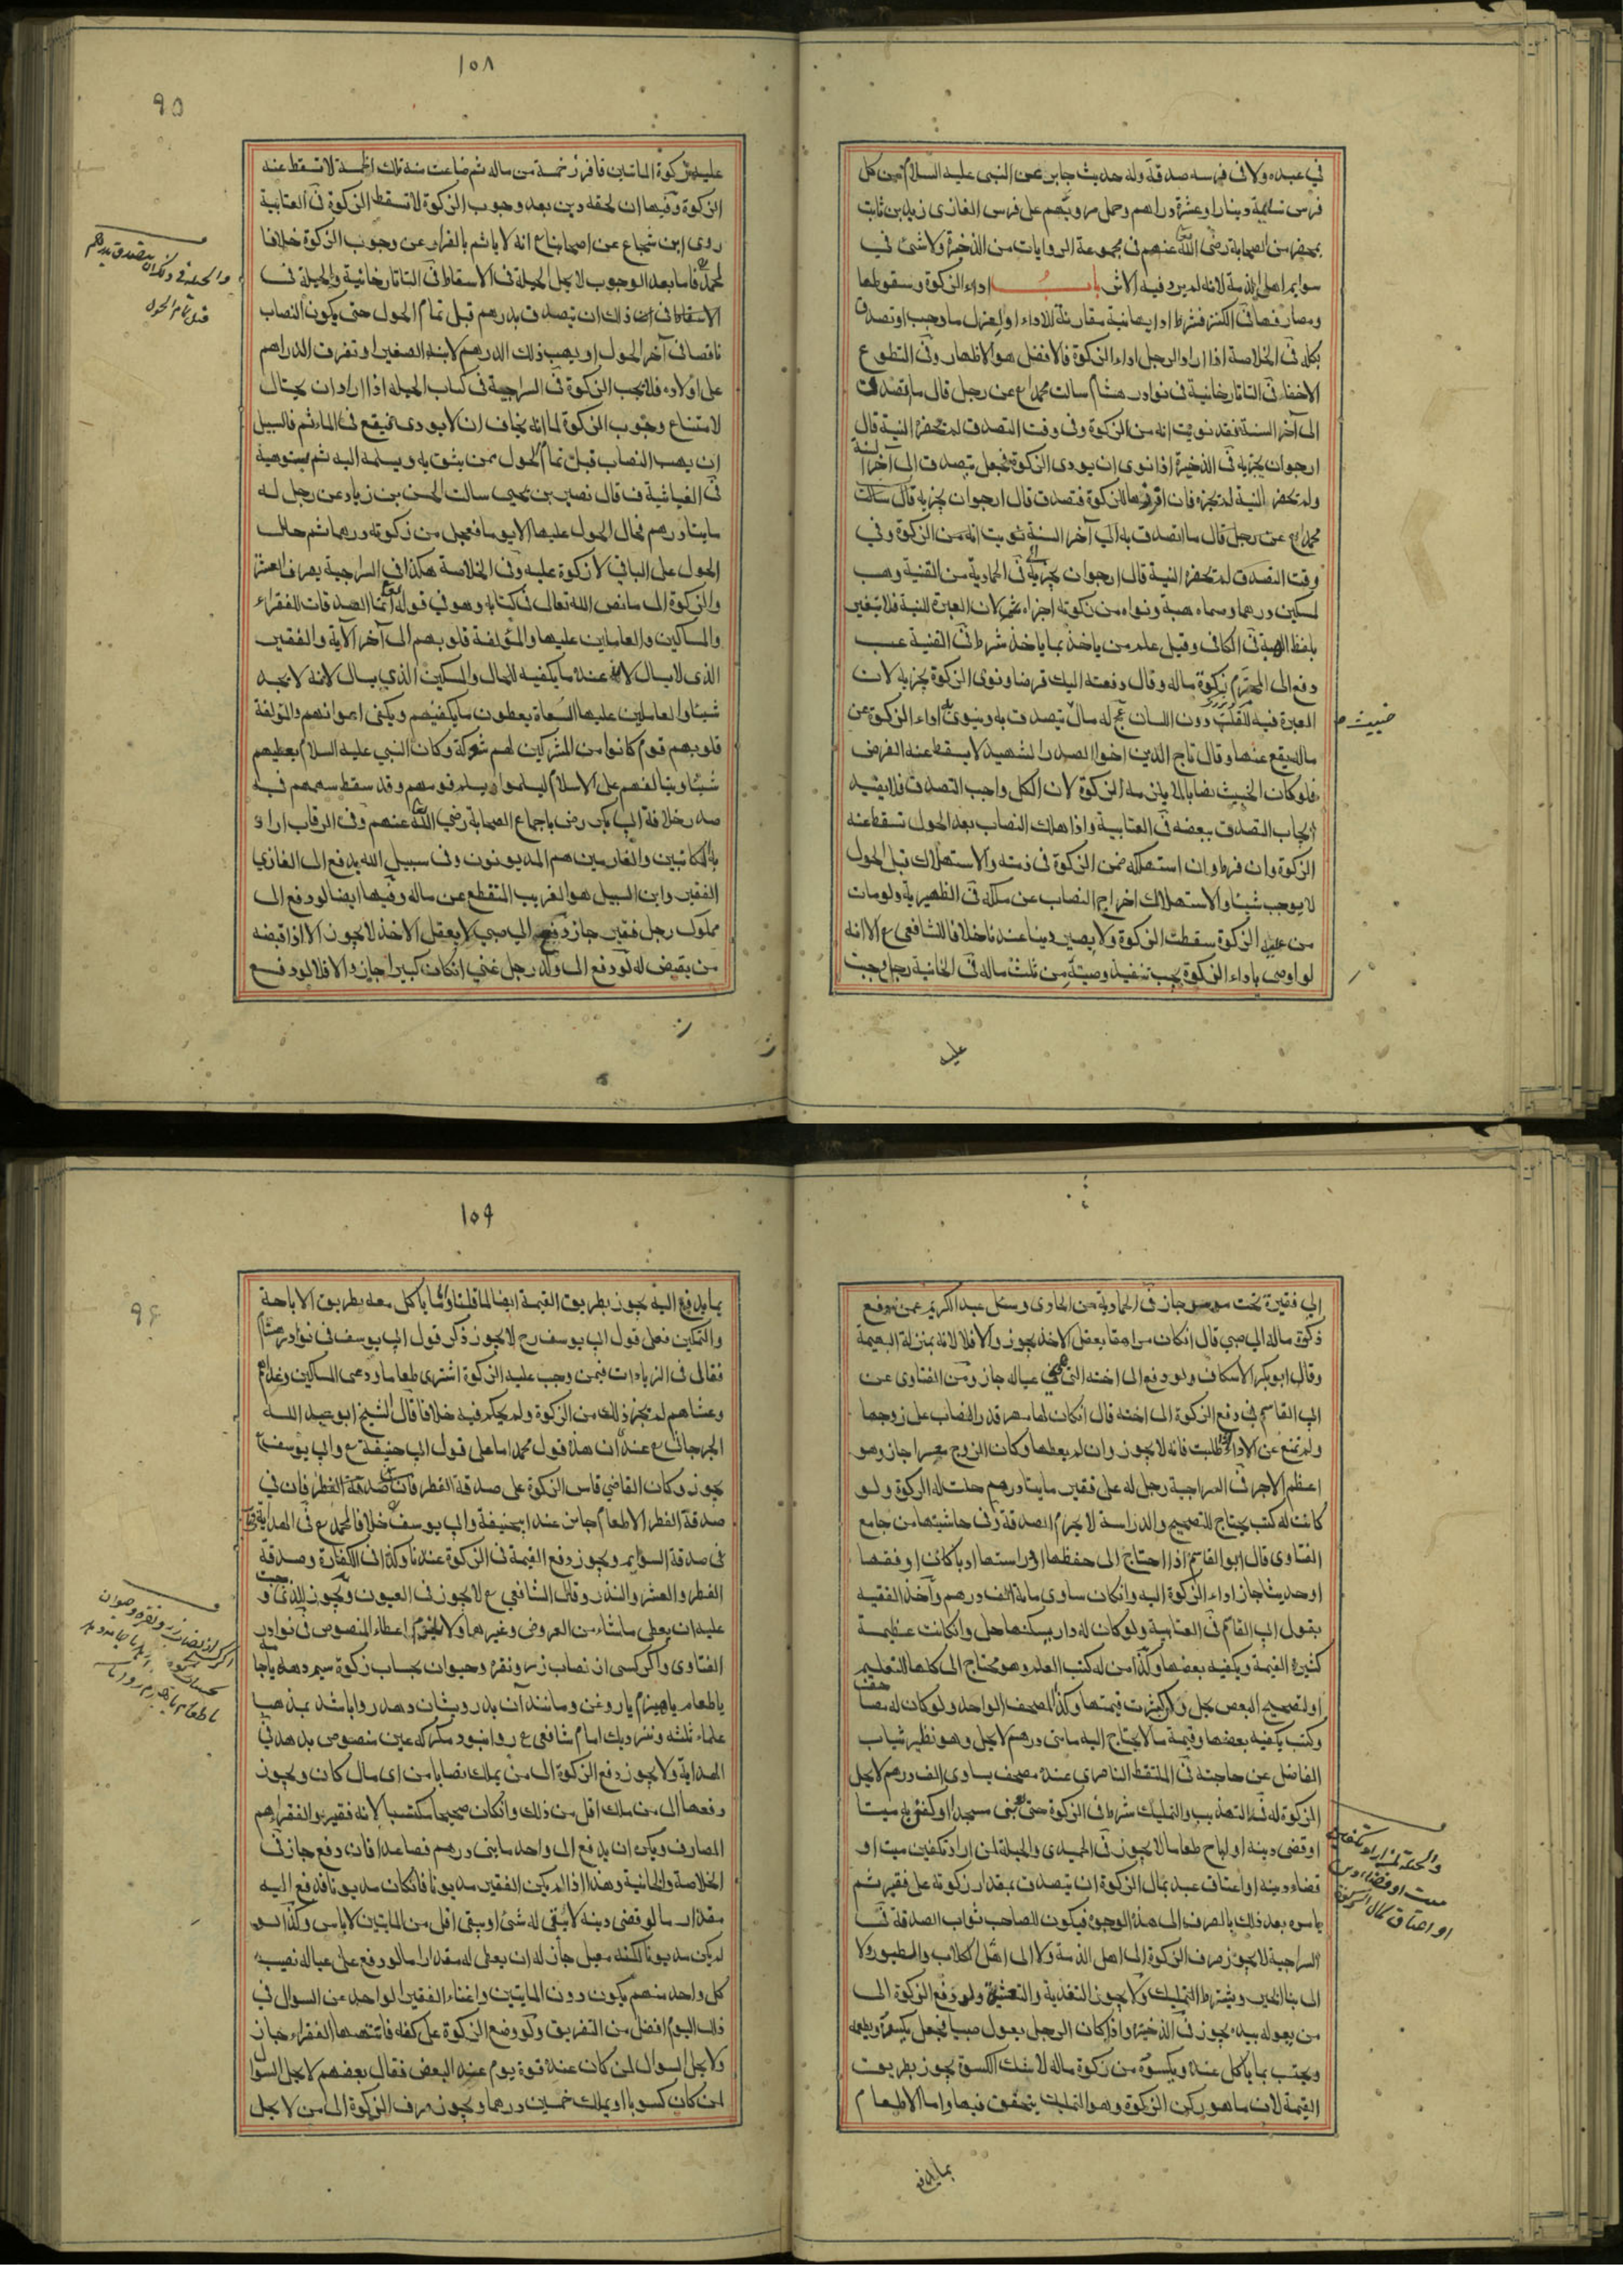 في عبده ولا في فرسه صدقة وله حديث جابر عن النبي عليه السلام من كل
فرس سايمة دينارا وعشرة دراهم وحمل مرويهم على فرس الغازى زيد بن ثابت
بمحضر من الصحابة رضى الله عنهم في مجموعة الروايات من الذخيرة ولا شئ في
سوايم اهل الذمة لانه لم يرد فيه الاثر باب اداء الزكوة وسقوطها
ومصارفها في الكنز فشرط ادايها نية مقارنة للاداء او لعزل ما وجب او تصدق
بكله في الخلاصة اذا اراد الرجل اداء الزكوة فالافضل هو الاظهار وفي التطوع
الاخفاء في التاتارخانية في نوادر هشام سالت محمدا ع عن رجل قال ما تصدقت
الى آخر السنة فقد نويت انه من الزكوة وفي وقت التصدق لم تحضره النية قال
ارجو ان يجزيه في الذخيرة اذا نوى ان يودى الزكوة فجعل يتصدق الى آخر السنة
ولم تحضره النية لم تجزه فان افرزها للزكوة فتصدق قال ارجو ان يجزيه قال سالت
محمدا ع عن رجل قال ما اتصدق به الى آخر السنة نويت انه من الزكوة وفي
وقت التصدق لم تحضره النية قال ارجو ان يجزيه في الحمادية من القنية وهب
لمسكين درهما وسماه هبة ونواه من زكوته اجزاه لان العبرة للنية فلا تتغير
بلفظ الهبة في الكافى وقيل علم من ياخذ بما ياخذ شرط في القنية عب
دفع الى المحترم زكوة ماله وقال دفعته اليك قرضا ونوى الزكوة يجزيه لان
العبرة فيه للقلب دون اللسان له مال يتصدق به وينوى اداء الزكوة عن
خبيث
ماله يقع عنها وقال تاج الدين اخو الصدر الشهيد لا يسقط عنه الفرض
فلو كان الخبيث نصابا لا يلزمه الزكوة لان الكل واجب التصدق فلا يفيد
ايجاب التصدق ببعضه في العتابية واذا هلك النصاب بعد الحول تسقط عنه
الزكوة وان فرط وان استهلكه ضمن الزكوة في ذمته والاستهلاك قبل الحول
لا يوجب شيئا والاستهلاك اخراج النصاب عن ملكه في الظهيرية ولو مات
من عليه الزكوة سقطت الزكوة ولا يصير دينا عندنا خلافا للشافعى ع الا انه
لو اوصى باداء الزكوة يجب تنفيذ وصيته من ثلث ماله في الخانية رجل وجبت
عليه
١٥٨
٩٥
عليه زكوة الماتين فافرز خمسة من ماله ثم ضاعت منه تلك الخمسة لا تسقط عنه
الزكوة وفيها ان لحقه دين بعد وجوب الزكوة لا تسقط الزكوة في العتابية
روى ابن شجاع عن اصحابنا ع انه لا ياثم بالفرار عن وجوب الزكوة خلافا
لمحمد ع فاما بعد الوجوب لا يحل الحيلة في الاسقاط في التاتارخانية والحيلة في
الاسقاط ان يتصدق بدرهم قبل تمام الحول حتى يكون النصاب
قبل تمام الحول
ناقصا في آخر الحول او يهب ذلك الدرهم لابنه الصغير او تفرق الدراهم
على اولاده فلا يجب الزكوة في السراجية في كتاب الحيلة اذا اراد ان يحتال
لامتناع وجوب الزكوة لما انه يخاف ان لا يودى فيقع في الماثم فالسبيل
ان يهب النصاب قبل تمام الحول ممن يثق به ويسلمه اليه ثم يستوهبه
في الغياثية قال نصير بن يحيى سالت الحسن بن زياد عن رجل له
مايتا درهم فحال الحول عليها الا يوما فعجل من زكوته درهما ثم حال
الحول على الباقي لا زكوة عليه وفي الخلاصة هكذا في السراجية يصرف العشر
والزكوة الى ما نص الله تعالى في كتابه وهو في قوله تعالى انما الصدقات للفقراء
والمساكين والعاملين عليها والمؤلفة قلوبهم الى آخر الآية والفقير
الذى لا يسال لان عنده ما يكفيه للحال والمسكين الذي يسال لانه لا يجد
شيئا والعاملين عليها السعاة يعطون ما يكفيهم ويكفى اعوانهم والمولفة
قلوبهم قوم كانوا من المشركين لهم شوكة وكان النبي عليه السلام يعطيهم
شيئا ويتالفهم على الاسلام ليسلموا ويسلم قومهم وقد سقط سهمهم في
صدر خلافة ابي بكر رض باجماع الصحابة رضي الله عنهم وفي الرقاب اراد
به المكاتبين والغارمين هم المديونون وفي سبيل الله يدفع الى الغازي
الفقير وابن السبيل هو الغريب المنقطع عن ماله وفيها ايضا لو دفع الى
مملوك رجل فقير جاز دفع الى صبي لا يعقل الاخذ لا يجوز الا اذا قبضه
من يقبض له لو دفع الى ولد رجل غني ان كان كبيرا جاز والا فلا لو دفع
الى فقيرة تحت موسر جاز في الحمادية من الحاوى وسئل عبد الكريم عمن دفع
زكوة ماله الى صبي قال ان كان مراهقا يعقل الاخذ يجوز والا فلا لانه بمنزلة البهيمة
وقال ابو بكر الاسكاف ولو دفع الى اخته التى في عياله جاز ومن الفتاوى عن
ابي القاسم في دفع الزكوة الى اخته قال ان كان لها مهر قدر النصاب على زوجها
ولم تمنع عن الاداء لو طلبت فانه لا يجوز وان لم يعطها وكان الزوج معسرا جاز وهو
اعظم الاجر في السراجية رجل له على فقير مايتا درهم حلت له الزكوة ولو
كانت له كتب يحتاج للتصحيح والدراسة لا يحرم الصدقة وفي حاشيتها من جامع
الفتاوى قال ابو القاسم اذا احتاج الى حفظها ودراستها ادبا كان او فقها
او حديثا جاز اداء الزكوة اليه وان كان ساوى ماية الف درهم واخذ الفقيه
بقول ابي القاسم في العتابية ولو كان له دار يسكنها حل وان كانت عظيمة
كثيرة القيمة ويكفيه بعضها وكذا من له كتب العلم وهو محتاج الى كلها للتعليم
او لتصحيح البعض يحل وان كثرت قيمتها وكذا المصحف الواحد ولو كان له مصاحف
وكتب يكفيه بعضها وقيمة ما لا يحتاج اليه مايتى درهم لا يحل وهو نظير ثياب
الفاضل عن حاجته في الملتقط الناصرى عنده مصحف يساوى الف درهم لا يحل
الزكوة له في التهذيب والتمليك شرط في الزكوة حتى لو بنى مسجدا او كفن به ميتا
او قضى دينه او اباح طعاما لا يجوز في الحميدى والحيلة لمن اراد تكفين ميت او
قضاء دينه او اعتاق عبد بمال الزكوة ان يتصدق بمقدار زكوته على فقير ثم
يامره بعد ذلك بالصرف الى هذه الوجوه فيكون للصاحب ثواب الصدقة في
السراجية لا يجوز صرف الزكوة الى اهل الذمة ولا الى
ويشترط التمليك ولا يجوز التغدية والتعشية ولو دفع الزكوة الى
من يعوله بيده يجوز في الذخيرة واذا كان الرجل يعول صبيا فجعل يكسوه ويطعمه
ويحتسب بما ياكل عنده ويكسوه من زكوة ماله لا شك الكسوة يجوز بطريق
القيمة لان ما هو ركن الزكوة وهو التمليك يتحقق فيها واما الاطعام
بما يدفع
١٥٩
٩٦
بما يدفع اليه يجوز بطريق القيمة ايضا لما قلنا وما ياكل معه بطريق الاباحة
والتمكين فعلى قول ابي يوسف رح لا يجوز ذكر قول ابي يوسف في نوادر هشام
فقال في الزيادات فيمن وجب عليه الزكوة اشترى طعاما ودعى المساكين وغداهم
وعشاهم لم يجز ذلك من الزكوة ولم يحكم فيه خلافا قال الشيخ ابو عبد الله
الجرجانى ع عنده ان هذا قول محمد اما على قول ابي حنيفة ع وابي يوسف ع
يجوز وكان القاضي قاس الزكوة على صدقة الفطر فان في
صدقة الفطر الاطعام جايز عند ابيحنيفة وابي يوسف خلافا لمحمد ع في الهداية
في صدقة السوايم ويجوز دفع القيمة في الزكوة عندنا وكذا في الكفارة وصدقة
الفطر والعشر والنذر وقال الشافعي ع لا يجوز في العيون ويجوز للذى وجبت
عليه ان يعطى ما شاء من العروض وغيرها ولا يلزم اعطاء المنصوص في نوادر
الفتاوى واكر كسى از نصاب زر ونقره وحيوان بحساب زكوة سيم دهد يا جامه
يا طعام يا هيزم يا روغن ومانند آن بدرويشان دهد روا باشد بمذهب
علماء ثلثه ونزديك امام شافعى ع روا نبود مكر كه عين منصوص بدهد في
الهداية ولا يجوز دفع الزكوة الى من يملك نصابا من اى مال كان ويجوز
دفعها الى من يملك اقل من ذلك وان كان صحيحا مكتسبا لانه فقير والفقراء هم
المصارف ويكره ان يدفع الى واحد مايتى درهم فصاعدا فان دفع جاز في
الخلاصة والخانية وهذا اذا لم يكن الفقير مديونا فان كان مديونا فدفع اليه
مقدار ما لو قضى دينه لا يبقى له شئ او يبقى اقل من المايتين لا باس وكذا لو
لم يكن مديونا لكنه معيل جاز له ان يعطى له مقدارا ما لو وزع على عياله نصيب
كل واحد منهم يكون دون المايتين واغناء الفقير الواحد عن السوال في
ذلك اليوم افضل من التفريق ولو وضع الزكوة على كفه فانتهبها الفقراء جاز
ولا يحل السوال لمن كان عنده قوة يوم عند البعض فقال بعضهم لا يحل السوال
لمن كان كسوبا او يملك خمسين درهما ويجوز صرف الزكوة الى من لا يحل